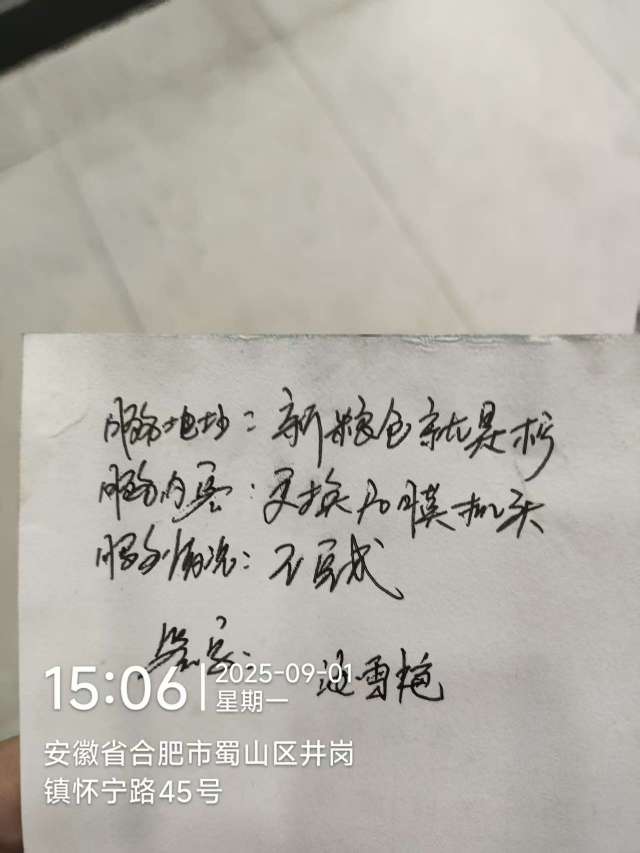 服务地址：新粮仓就是村
服务内容：更换启膜机头
服务情况：已完成
签字：
15:06 2025-09-01
星期一
安徽省合肥市蜀山区井岗
镇怀宁路45号